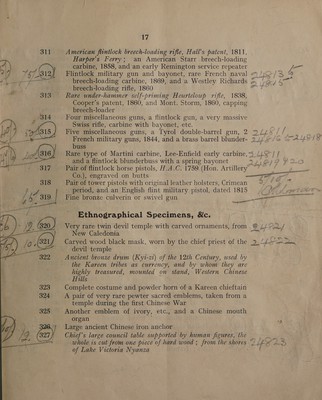 17
311 American flintlock breech-loading rifle, Hall's patent, 1811,
Harper's Ferry; an American Starr breech-loading
carbine, 1858, and an early Remington service repeater
312 Flintlock military gun and bayonet, rare French naval
breech-loading carbine, 1869, and a Westley Richards
breech-loading rifle, 1860
24815
313 Rare under-hammer self-priming Heurteloup rifle, 1838,
Cooper's patent, 1860, and Mont. Storm, 1860, capping
breech-loader
314 Four miscellaneous guns, a flintlock gun, a very massive
Swiss rifle, carbine with bayonet, etc.
315 Five miscellaneous guns, a Tyrol double-barrel gun, 2
French military guns, 1844, and a brass barrel blunder-
buss
316 Rare type of Martini carbine, Lee-Enfield early carbine,
and a flintlock blunderbuss with a spring bayonet
24811
317 Pair of flintlock horse pistols, H.A.C. 1759 (Hon. Artillery
Co.), engraved on butts
318 Pair of tower pistols with original leather holsters, Crimean
period, and an English flint military pistol, dated 1813
319 Fine bronze culverin or swivel gun
Ethnographical Specimens, &c.
320 Very rare twin devil temple with carved ornaments, from
New Caledonia
24821
321 Carved wood black mask, worn by the chief priest of the
devil temple
24822
322 Ancient bronze drum (Kyi-zi) of the 12th Century, used by
the Kareen tribes as currency, and by whom they are
highly treasured, mounted on stand, Western Chinese
Hills
323 Complete costume and powder horn of a Kareen chieftain
324 A pair of very rare pewter sacred emblems, taken from a
temple during the first Chinese War
325 Another emblem of ivory, etc., and a Chinese mouth
organ
326 Large ancient Chinese iron anchor
327 Chief's large council table supported by human figures, the
whole is cut from one piece of hard wood; from the shores
of Lake Victoria Nyanza
24823